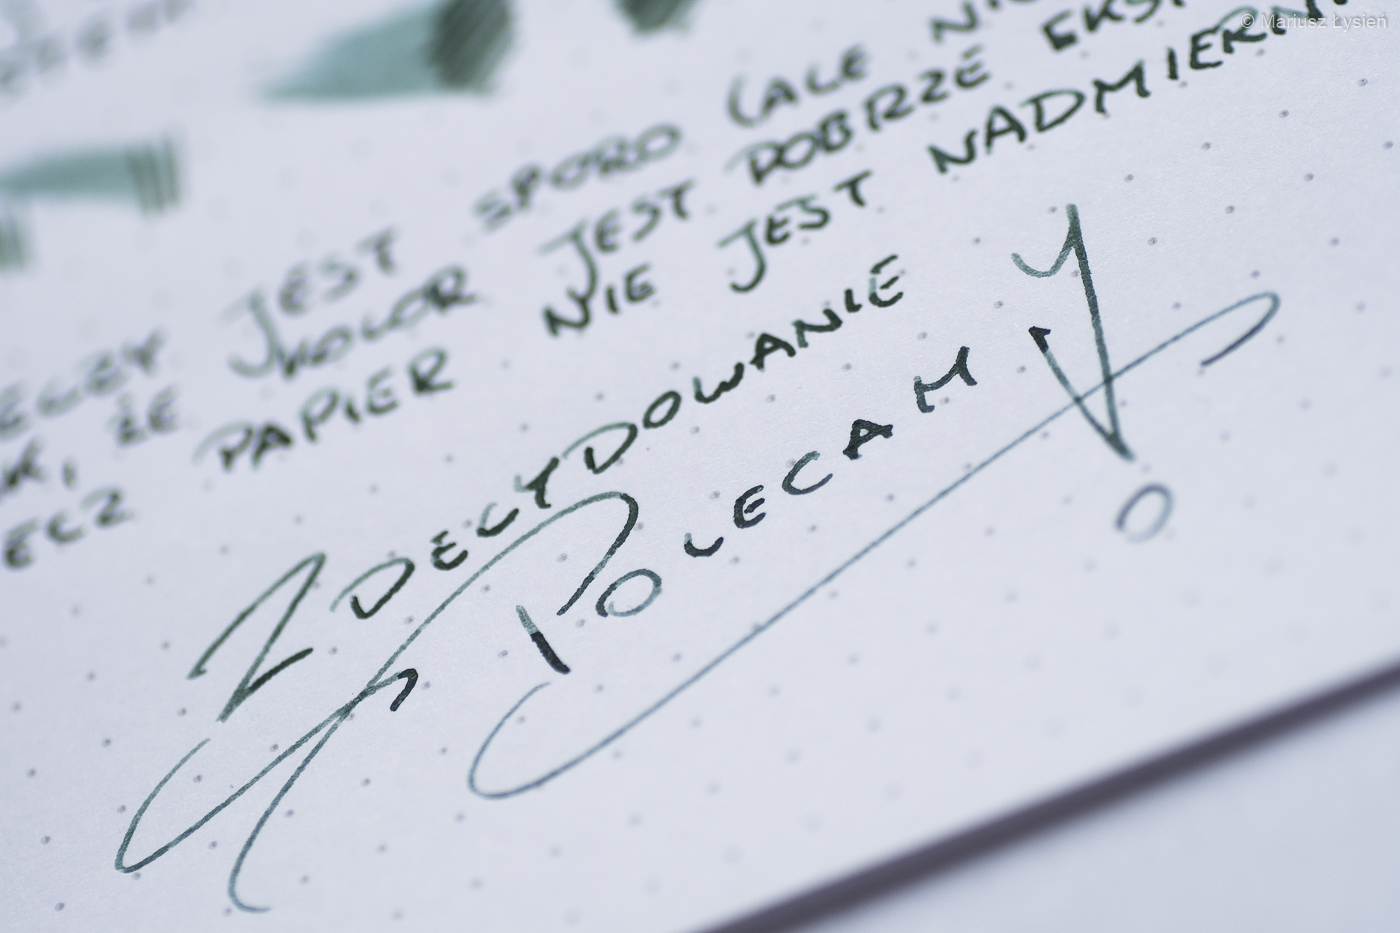 © Mariusz Łysień
JEST SPORO (ALE
, ŻE KOLOR JEST DOBRZE
PAPIER NIE JEST NADMIERN
ZDECYDOWANIE
POLECAMY!